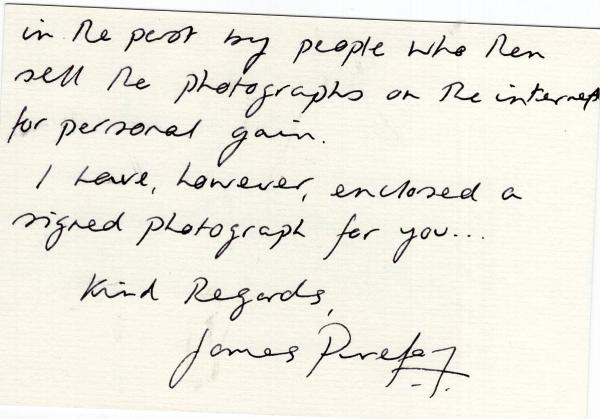 in the past by people who then
sell the photographs on the internet
for personal gain.
I have, however, enclosed a
signed photograph for you...
Kind Regards,
James Purefoy